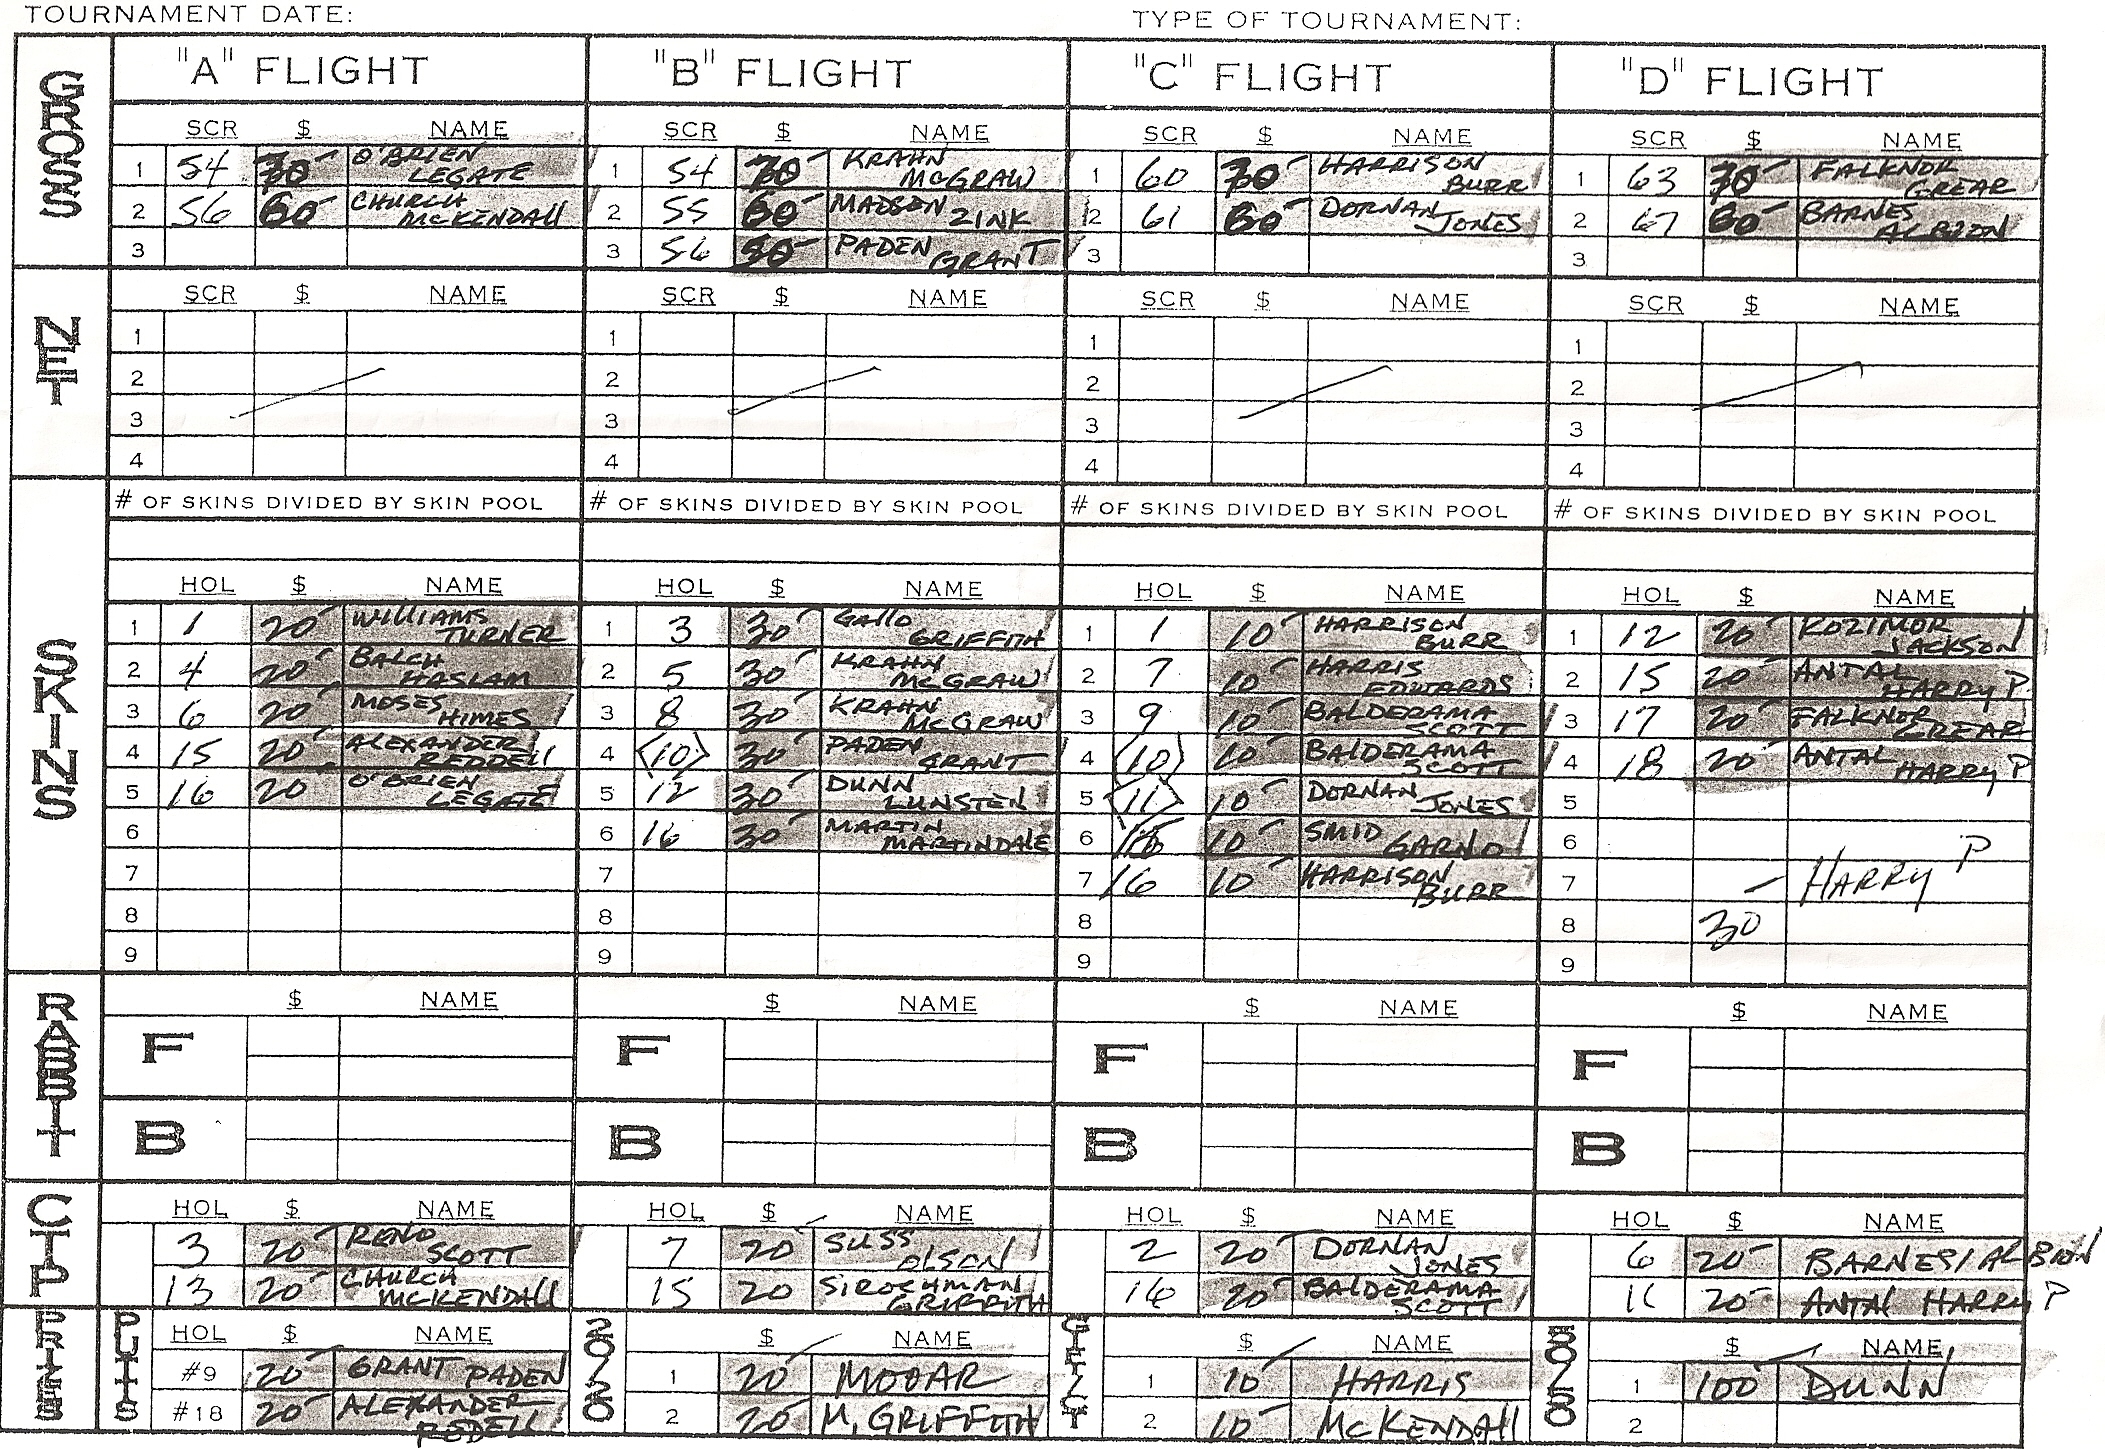 TOURNAMENT DATE: TYPE OF TOURNAMENT:
GROSS
"A" FLIGHT "B" FLIGHT "C" FLIGHT "D" FLIGHT
SCR $ NAME SCR $ NAME SCR $ NAME SCR $ NAME
1 54 70- O'BRIEN LEGATE 1 54 70- KRAHN McGRAW 1 60 70- HARRISON BURR 1 63 70- FALKNOR GREAR
2 56 60- CHURCH McKENDAll 2 55 60- MADSEN ZINK 2 61 60- DORNAN JONES 2 67 60- BARNES ALBION
3 3 56 50- PADEN GRANT 3 3
NET
SCR $ NAME SCR $ NAME SCR $ NAME SCR $ NAME
1 1 1 1
2 2 2 2
3 3 3 3
4 4 4 4
SKINS
# OF SKINS DIVIDED BY SKIN POOL # OF SKINS DIVIDED BY SKIN POOL # OF SKINS DIVIDED BY SKIN POOL # OF SKINS DIVIDED BY SKIN POOL
HOL $ NAME HOL $ NAME HOL $ NAME HOL $ NAME
1 1 20- WILLIAMS TURNER 1 3 30- GAllO GRIFFITH 1 1 10- HARRISON BURR 1 12 20- KOZIMOR JACKSON
2 4 20- BALCH HASLAM 2 5 30- KRAHN McGRAW 2 7 10- HARRIS EDWARDS 2 15 20- ANTAL HARRY P
3 6 20- MOSES HIMES 3 8 30- KRAHN McGRAW 3 9 10- BALDERAMA SCOTT 3 17 20- FALKNOR GREAR
4 15 20- ALEXANDER REDDELL 4 <10> 30- PADEN GRANT 4 <10> 10- BALDERAMA SCOTT 4 18 20- ANTAL HARRY P
5 16 20- O'BRIEN LEGATE 5 12 30- DUNN LUNSTEN 5 <11> 10- DORNAN JONES 5
6 6 16 30- MARTIN MARTINDALE 6 10- SMID GARNO 6
7 7 7 16 10- HARRISON BURR 7 - HARRY P
8 8 8 8 30
9 9 9 9
RABBIT
$ NAME $ NAME $ NAME $ NAME
F F F F
B B B B
CTP
HOL $ NAME HOL $ NAME HOL $ NAME HOL $ NAME
3 20- RENO SCOTT 7 20- SUSS OLSON 2 20- DORNAN JONES 6 20- BARNES/ALBION
13 20- CHURCH McKENDAll 15 20 SIROCHMAN GRIFFITH 14 20- BALDERAMA SCOTT 11 20- ANTAl HARRY P
PUTTS
HOL $ NAME $ NAME $ NAME $ NAME
#9 20- GRANT PADEN 1 20- MOOAR 1 10- HARRIS 1 100- DUNN
#18 20- ALEXANDER REDELL 2 20- M. GRIFFITH 2 10- McKENDAll 2
50/50